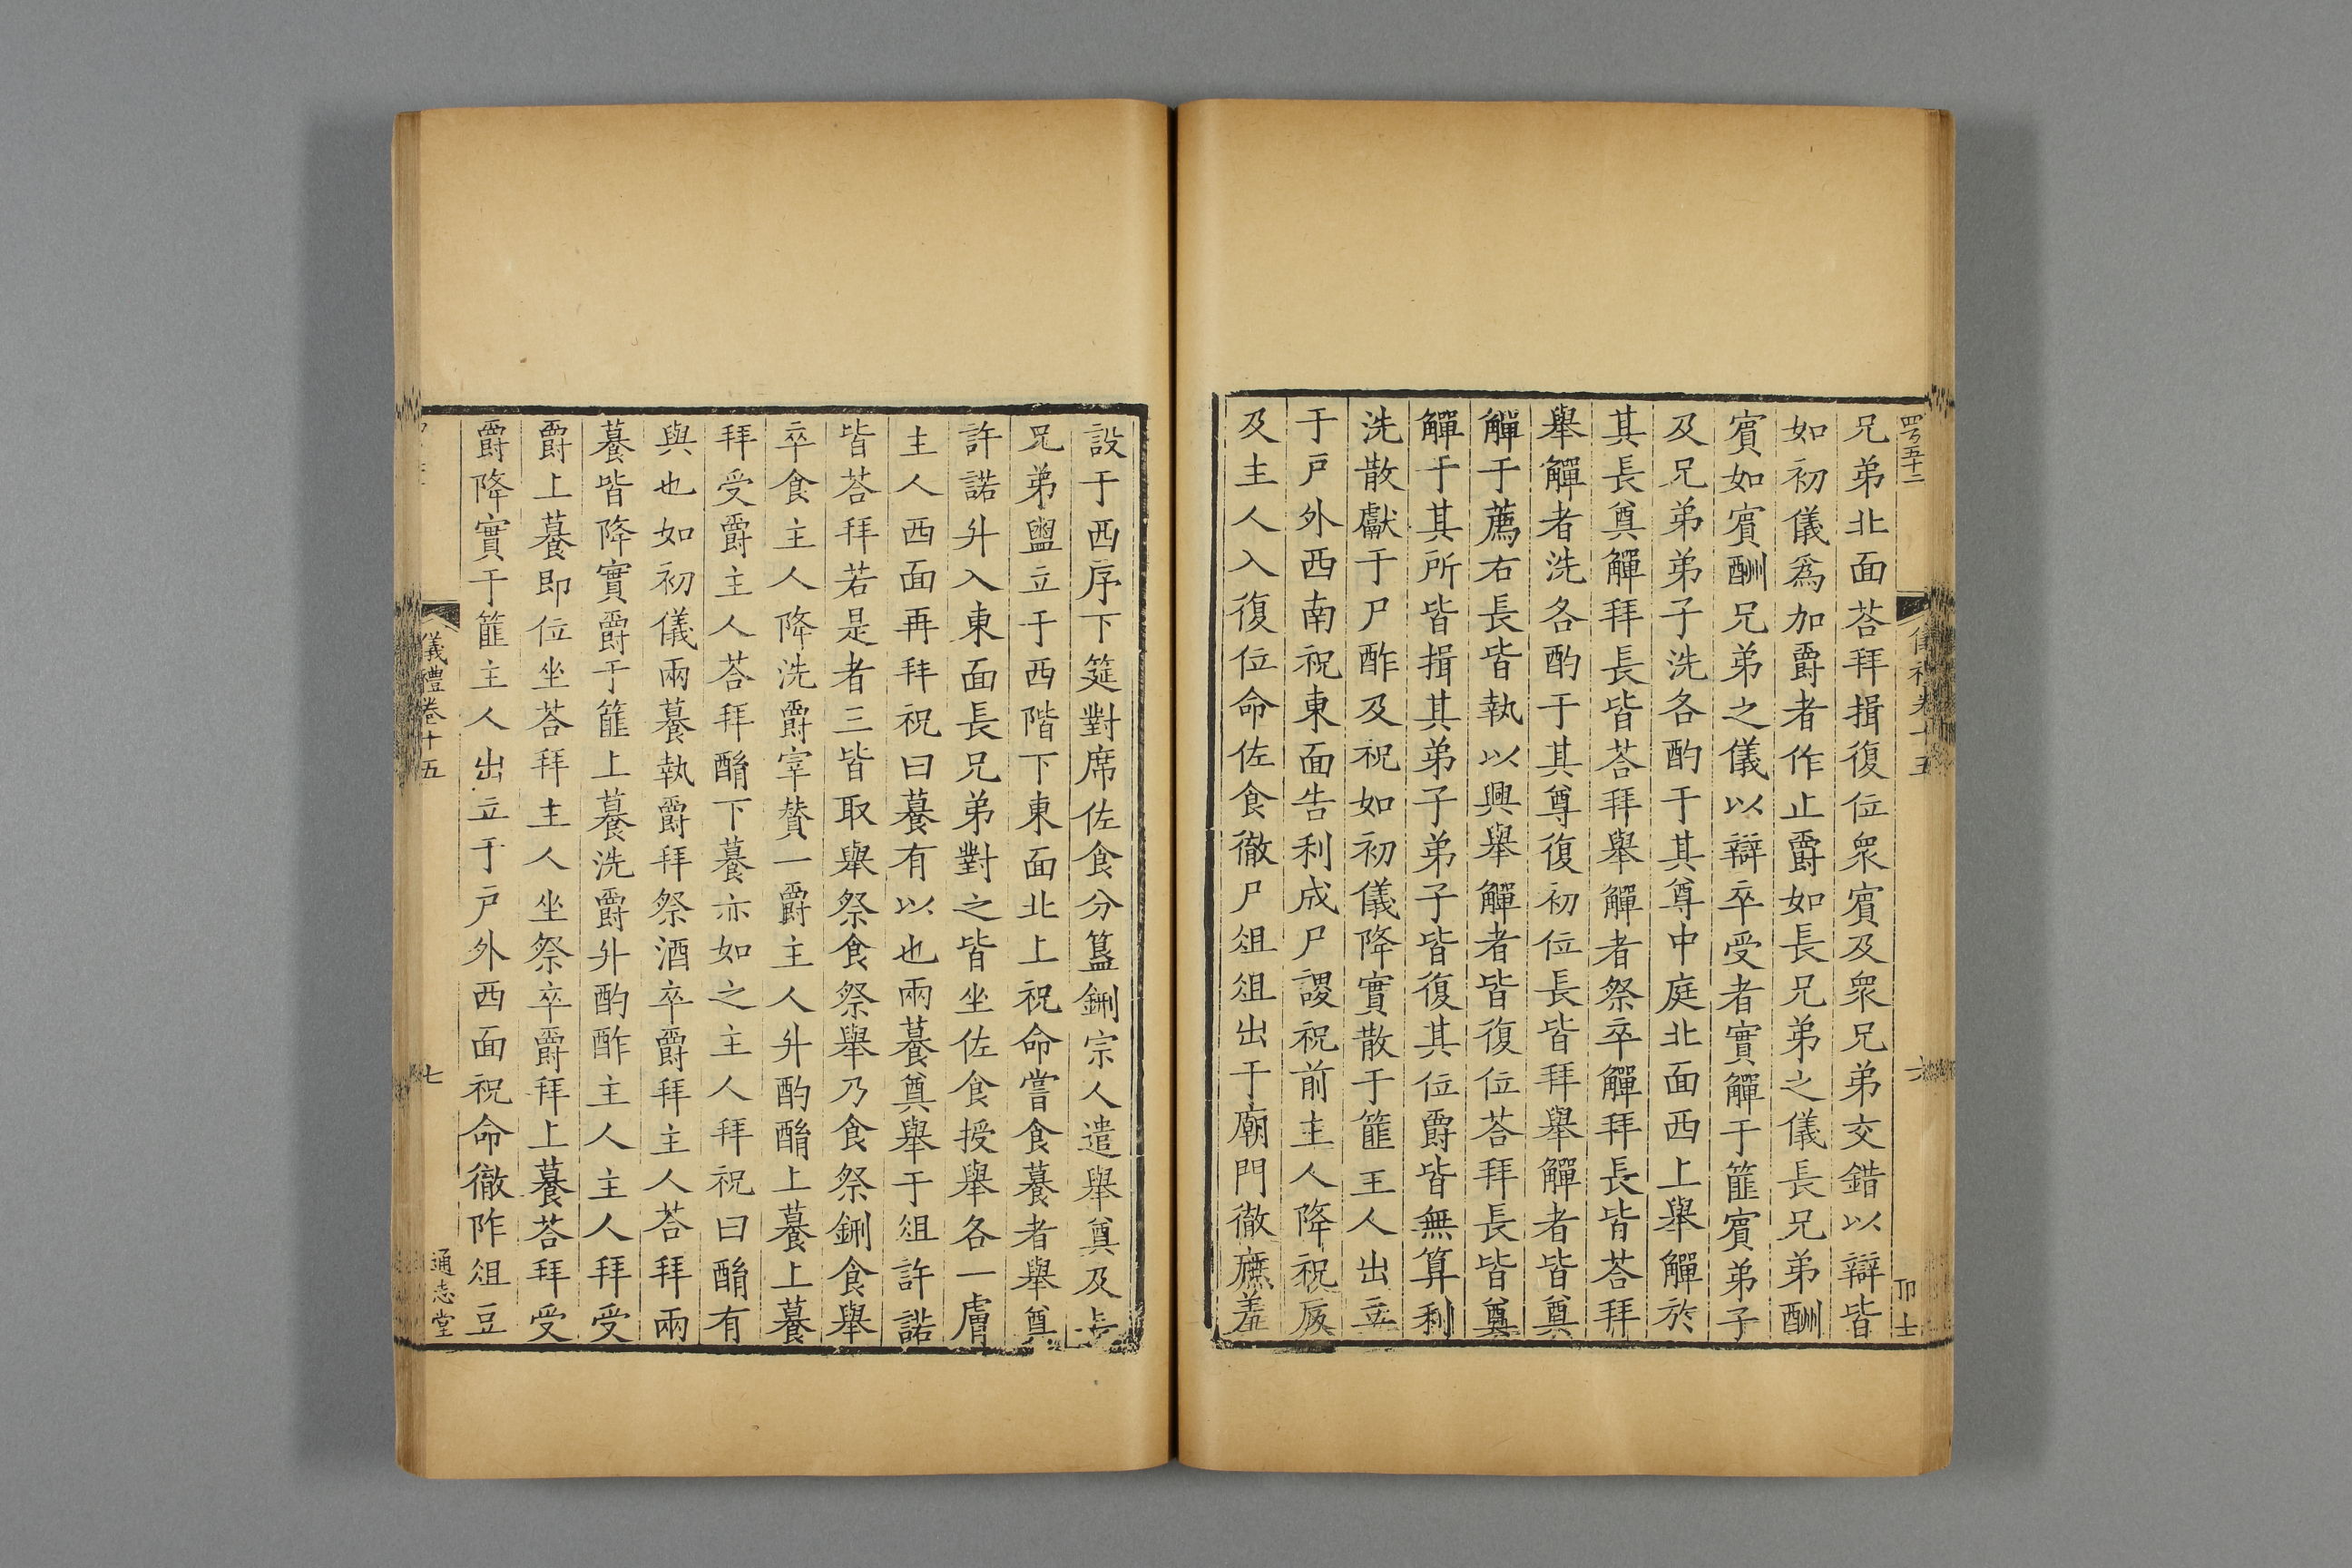 兄弟北面荅拜揖復位衆賓及衆兄弟交錯以辯皆
如初儀爲加爵者作止爵如長兄弟之儀長兄弟酬
賓如賓酬兄弟之儀以辯卒受者實觶于篚賓弟子
及兄弟弟子洗各酌于其尊中庭北面西上舉觶於
其長奠觶拜長皆荅拜舉觶者祭卒觶拜長皆荅拜
舉觶者洗各酌于其尊復初位長皆拜舉觶者皆奠
觶于薦右長皆執以興舉觶者皆復位荅拜長皆奠
觶于其所皆揖其弟子弟子皆復其位爵皆無算利
洗散獻于尸酢及祝如初儀降實散于篚主人出立
于戸外西南祝東面告利成尸謖祝前主人降祝反
及主人入復位命佐食徹尸俎俎出于廟門徹庶羞
設于西序下筵對席佐食分簋鉶宗人遣舉奠及長
兄弟盥立于西階下東面北上祝命嘗食䉵者舉奠
許諾升入東面長兄弟對之皆坐佐食授舉各一膚
主人西面再拜祝曰䉵有以也兩䉵奠舉于俎許諾
皆荅拜若是者三皆取舉祭食祭舉乃食祭鉶食舉
卒食主人降洗爵宰贊一爵主人升酌酳上䉵上䉵
拜受爵主人荅拜酳下䉵亦如之主人拜祝曰酳有
與也如初儀兩䉵執爵拜祭酒卒爵拜主人荅拜兩
䉵皆降實爵于篚上䉵洗爵升酌酢主人主人拜受
爵上䉵即位坐荅拜主人坐祭卒爵拜上䉵荅拜受
爵降實于篚主人出立于戸外西面祝命徹阼俎豆
儀禮卷十五
七
通志堂